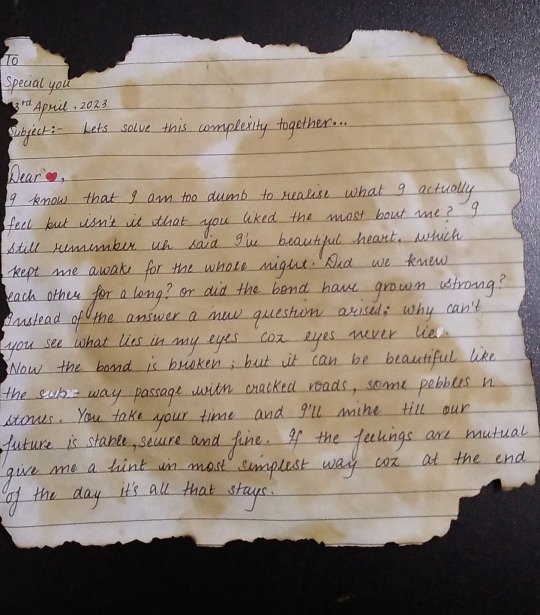 To
Special you
3rd April, 2023
Subject:- Lets solve this complexity together...
Dear ❤,
I know that I am too dumb to realise what I actually
feel but isn't it that you liked the most bout me? I
still remember uh said I've beautiful heart, which
kept me awake for the whole night. Did we knew
each other for a long? or did the bond have grown strong?
Instead of the answer a new question arised: why can't
you see what lies in my eyes coz eyes never lie.
Now the bond is broken; but it can be beautiful like
the sub-way passage with cracked roads, some pebbers n
stones. You take your time and I'll mine till our
future is stable, secure and fine. If the feelings are mutual
give me a hint in most simplest way coz at the end
of the day it's all that stays.